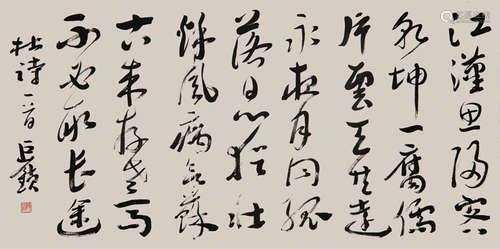 江漢思歸客
乾坤一腐儒
片雲天共遠
永夜月同孤
落日心猶壯
秋風病欲蘇
古來存老馬
不必取長途
杜詩一首 巨鎖